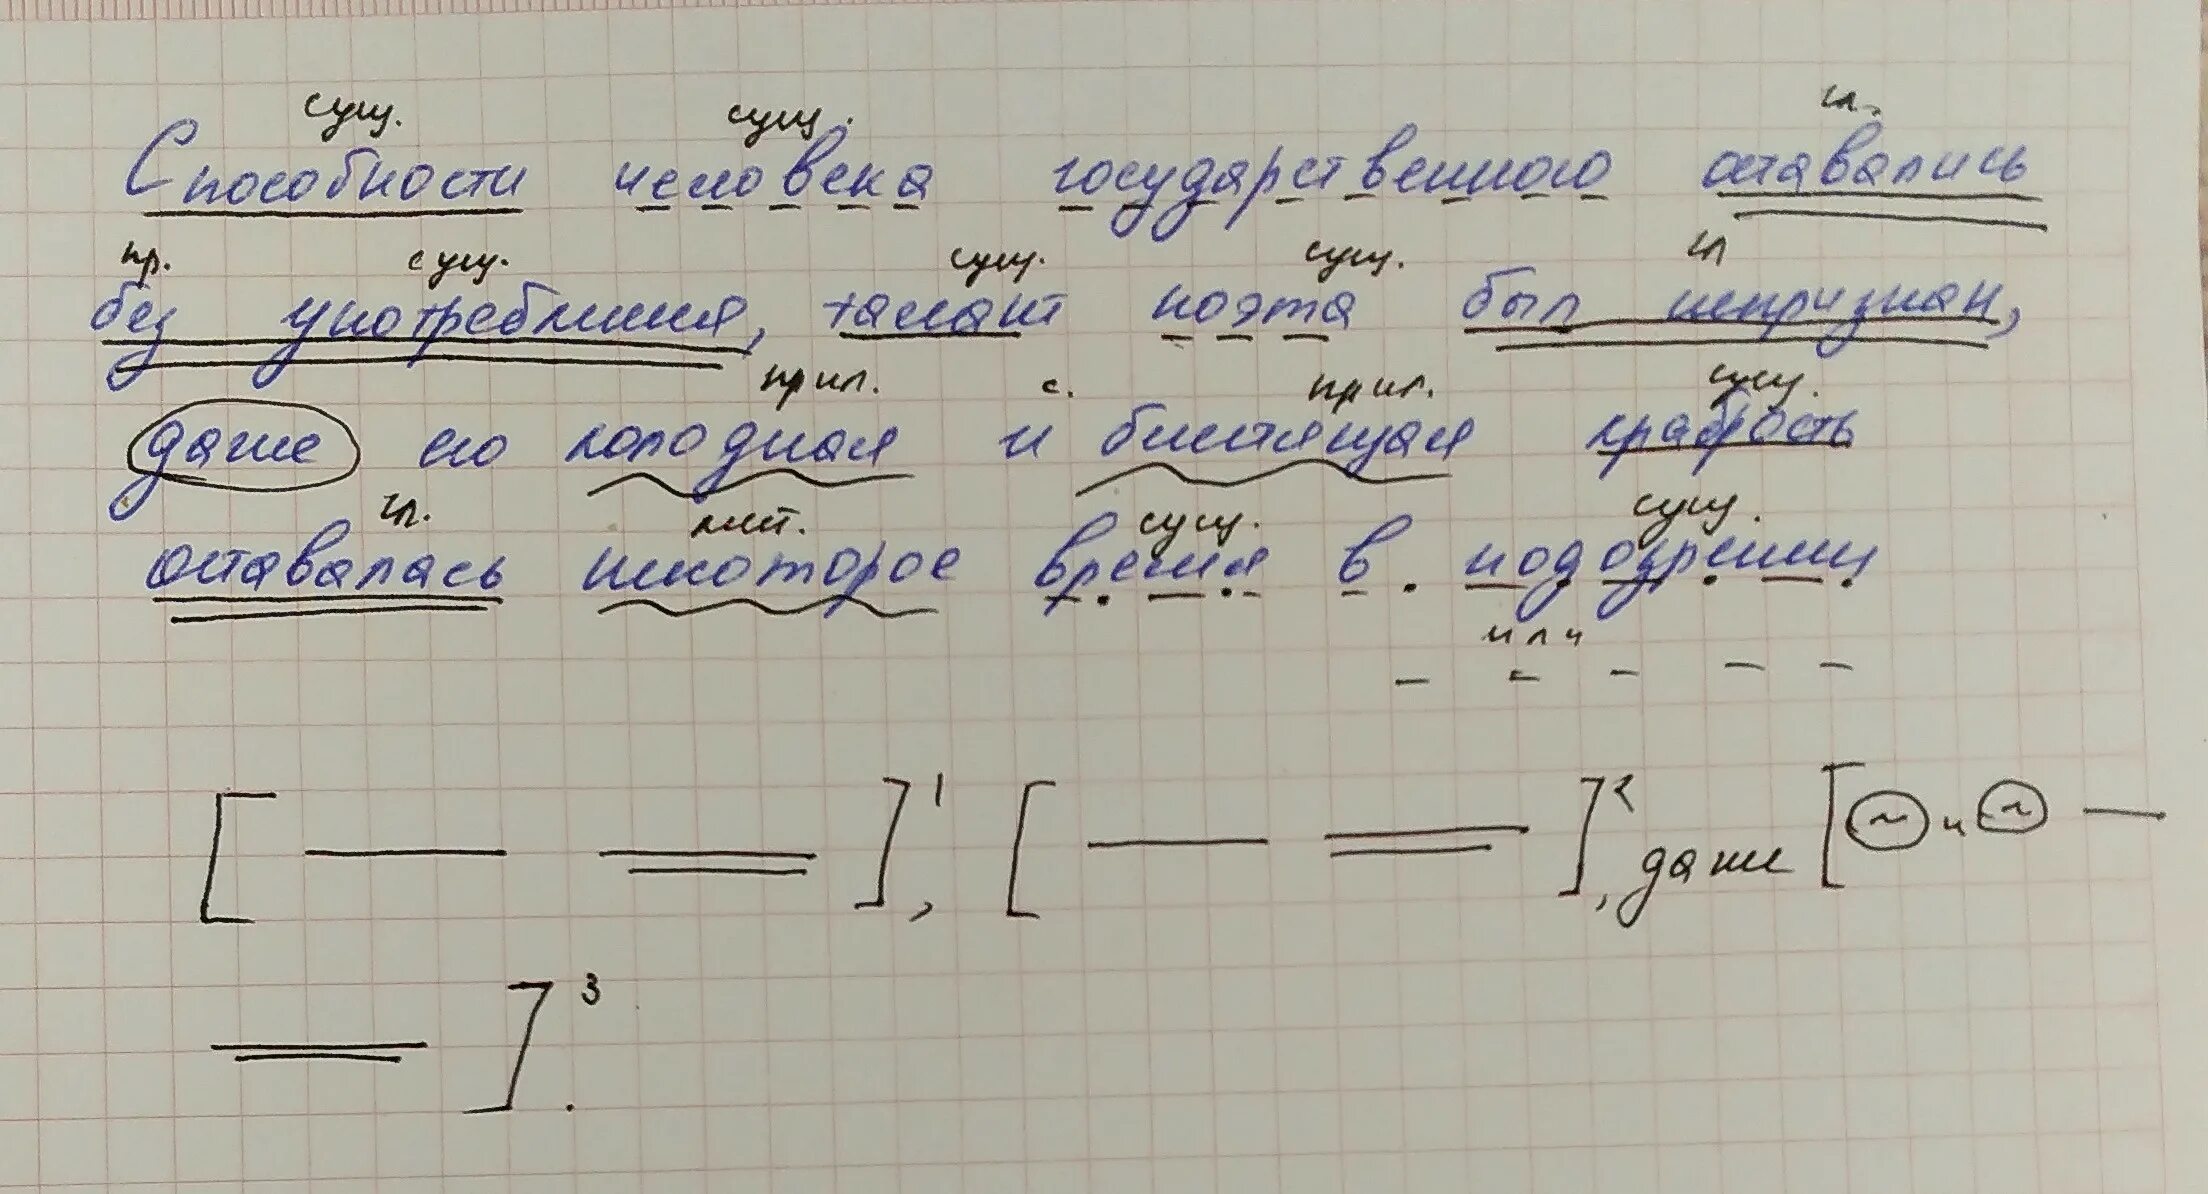 сущ. сущ. гл.
Способности человека государственного оставались
пр. сущ. сущ. сущ. гл
без употребления, талант поэта был непризнан,
прил. с. прил. сущ.
даже его холодная и блестящая храбрость
гл. мест. сущ. сущ.
оставалась некоторое время в подозрении
или
[ ]1, [ ]2, даже [ ~ и ~
]3.